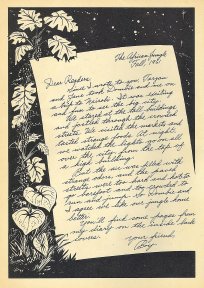 The African Jungle
Fall, 19
Dear Readers,
Since I wrote to you, Tarzan
and Jane took Dombie and me on
a trip to Nairobi. It was exciting
and fun to see the big city.
We stared at the tall buildings
and jostled through the crowded
streets. We visited the markets and
tasted strange foods. At night,
we watched the lights go on all
over the city from the top of
a high building.
But the air was filled with
strange odors, and the paved
streets were too hard and hot to
our barefeet and toy crowded to
run and jump. So Dombie and
I agree. We like our jungle home
better.
You'll find some pages from
my diary on the inside back
covers.
Your friend,
Boy